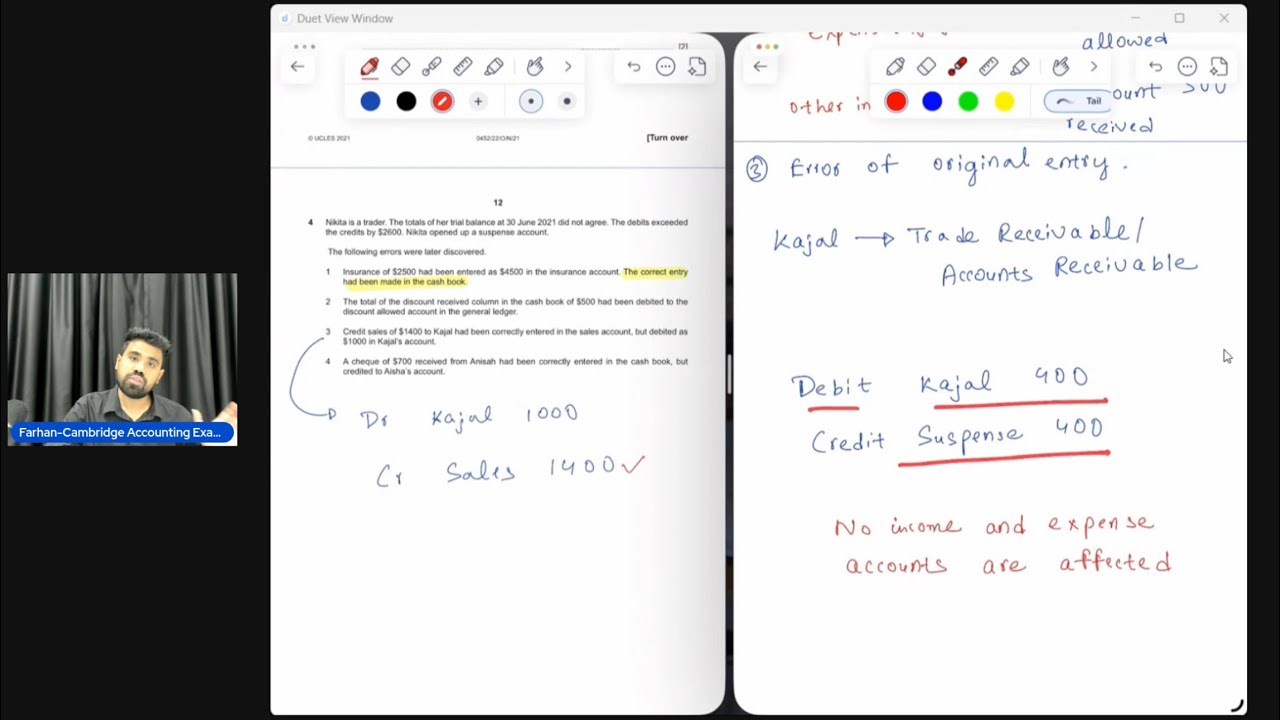 Duet View Window
[2]
© UCLES 2021 0452/22/O/N/21 [Turn over
12
4 Nikita is a trader. The totals of her trial balance at 30 June 2021 did not agree. The debits exceeded
the credits by $2600. Nikita opened up a suspense account.
The following errors were later discovered.
1 Insurance of $2500 had been entered as $4500 in the insurance account. The correct entry
had been made in the cash book.
2 The total of the discount received column in the cash book of $500 had been debited to the
discount allowed account in the general ledger.
3 Credit sales of $1400 to Kajal had been correctly entered in the sales account, but debited as
$1000 in Kajal's account.
4 A cheque of $700 received from Anisah had been correctly entered in the cash book, but
credited to Aisha's account.
Dr Kajal 1000
Cr Sales 1400 ✓
allowed
Tail
other in
ount 500
received
③ Error of original entry.
Kajal → Trade Receivable/
Accounts Receivable
Debit Kajal 400
Credit Suspense 400
No income and expense
accounts are affected
Farhan-Cambridge Accounting Exa...